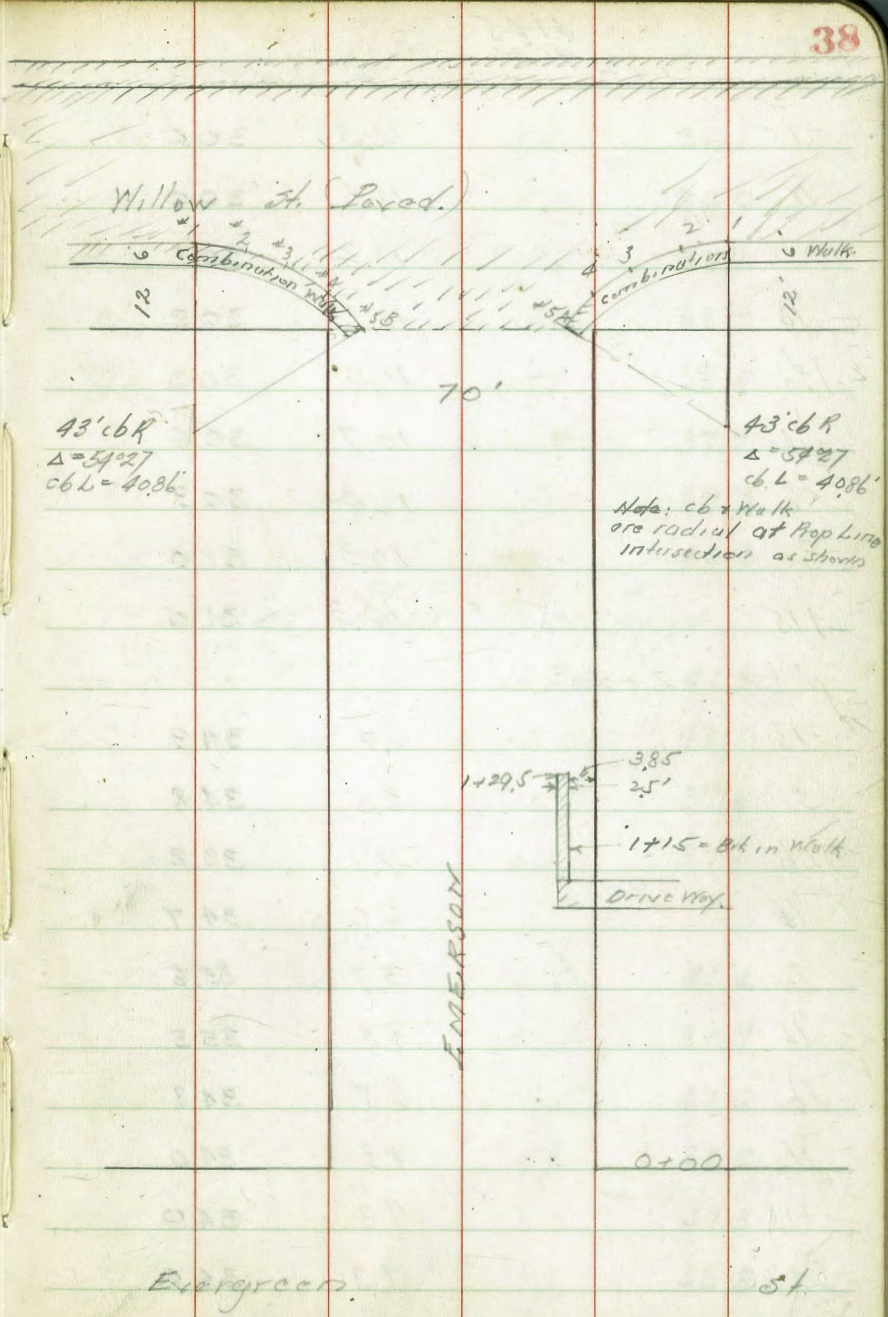 38
Willow St. (Paved.)
#1 #2 #3 #4 #5B
Combination Walk
6
12
1 2 3 4 #5A
combination
6 Walk
12'
70'
43' cb R
Δ = 54°27
cb L = 40.86'
43' cb R
Δ = 54°27
cb. L = 40.86'
Note: cb & Walk
are radial at Prop Line
intersection as shown
3.85
1+29.5
2.5'
1+15 = Brk in Walk
Drive Way.
EMERSON
0+00
Evergreen St.